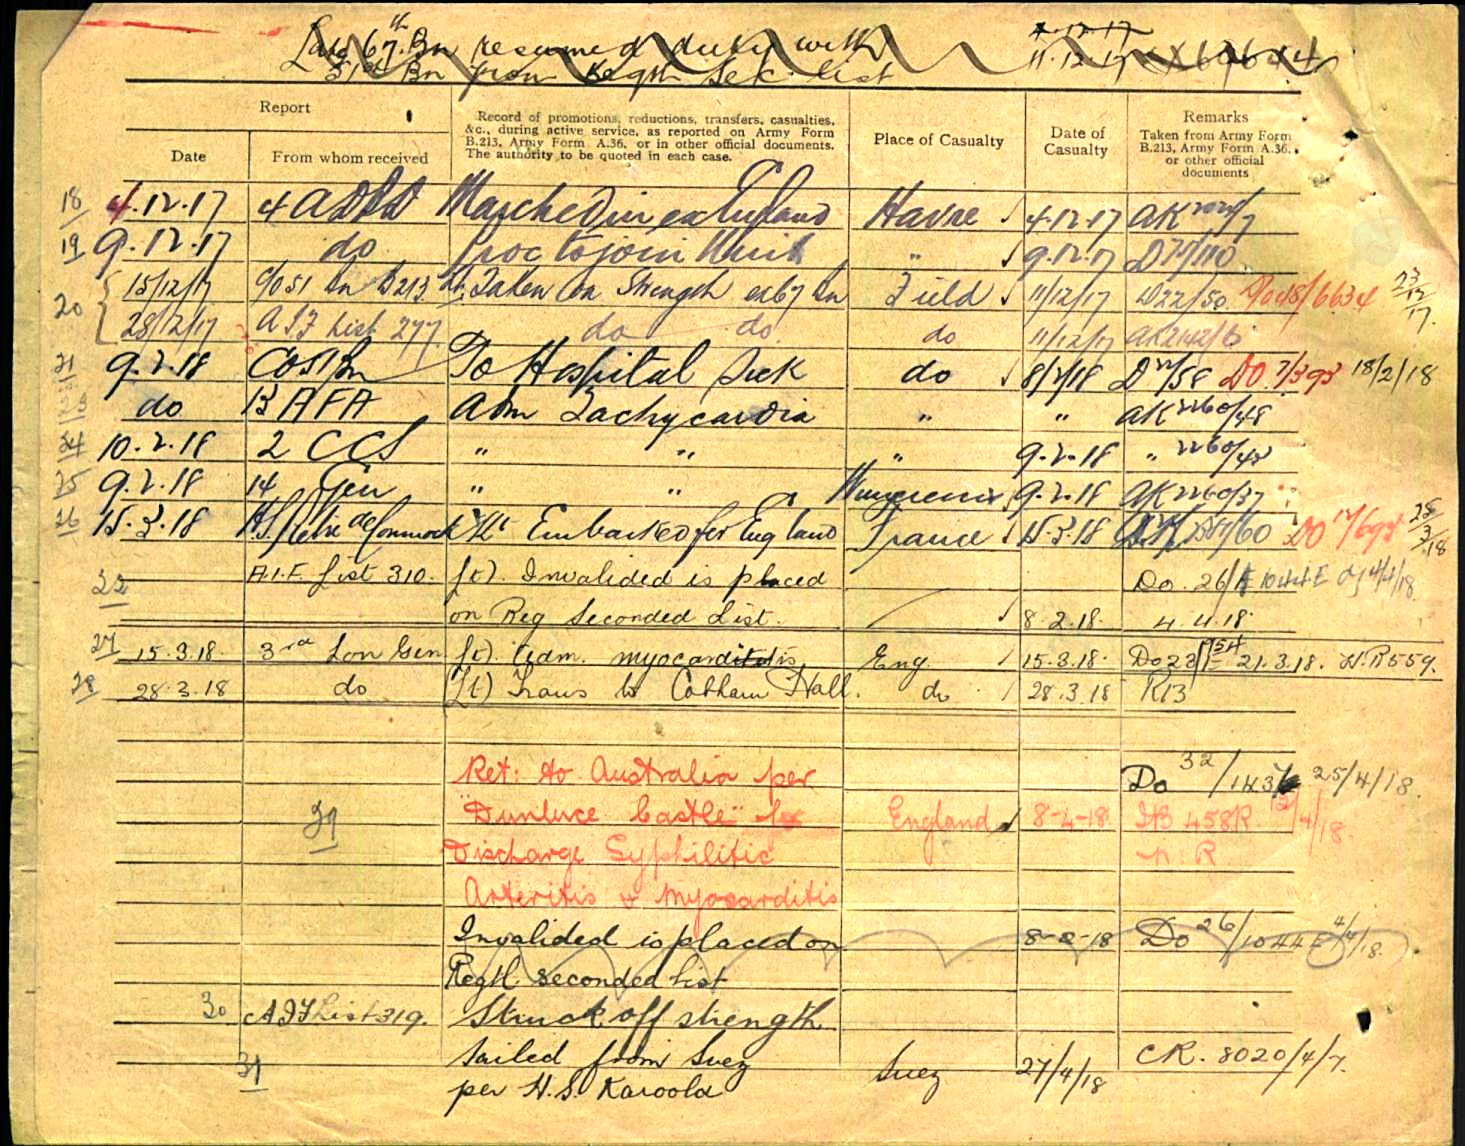 Late 67th Bn resumed duty with 4.12.17
51st Bn from Regtl Sec. list 11.12.17
Report
Record of promotions, reductions, transfers, casualties, &c., during active service, as reported on Army Form B.213, Army Form A.36, or in other official documents. The authority to be quoted in each case.
Place of Casualty
Date of Casualty
Remarks
Taken from Army Form B.213, Army Form A.36, or other official documents
Date From whom received
18 4.12.17 4 Marched in ex England Havre 4.12.17 AK
19 9.12.17 do Proc to join Unit " 9.12.17
20 15/12/17 C/O 51 Bn B213 Lt. Taken on Strength ex 67 Bn Field 11/12/17 D22/50
28/12/17 AIF List 277 do do do 11/12/17
21 9.2.18 CO 51 Bn To Hospital Sick do 8/2/18 DO 7/393 18/2/18
do 13 AFA Adm Tachycardia " " AK 2260/48
24 10.2.18 2 CCS " " " 9.2.18 " 2260/42
25 9.2.18 14 Gen " " Wimereux 9.2.18 AK 2260/37
26 15.3.18 Embarked for England France 15.3.18 DO 28/3/18
22 A.I.F. List 310. (Lt). Invalided is placed Do. 26/1044E of 4/4/18.
on Reg Seconded List. 8.2.18. 4.4.18
27 15.3.18. 3rd Lon Gen (Lt). Adm. myocarditis Eng. 15.3.18. 21.3.18. H.R559.
28 28.3.18 do (Lt) Trans to Cobham Hall. do 28.3.18 R13
Ret: to Australia per Do 32/ 25/4/18.
31 "Dunluce Castle" for England 8-4-18 458R 12/4/18.
Discharge Syphilitic
Arteritis & Myocarditis
Invalided is placed on 8-2-18 Do 26/1044E 4/4/18.
Regtl seconded list
30 AIF List 319. Struck off strength
31 Sailed from Suez Suez 27/4/18 CR. 8020/4/7.
per H.S. Karoola